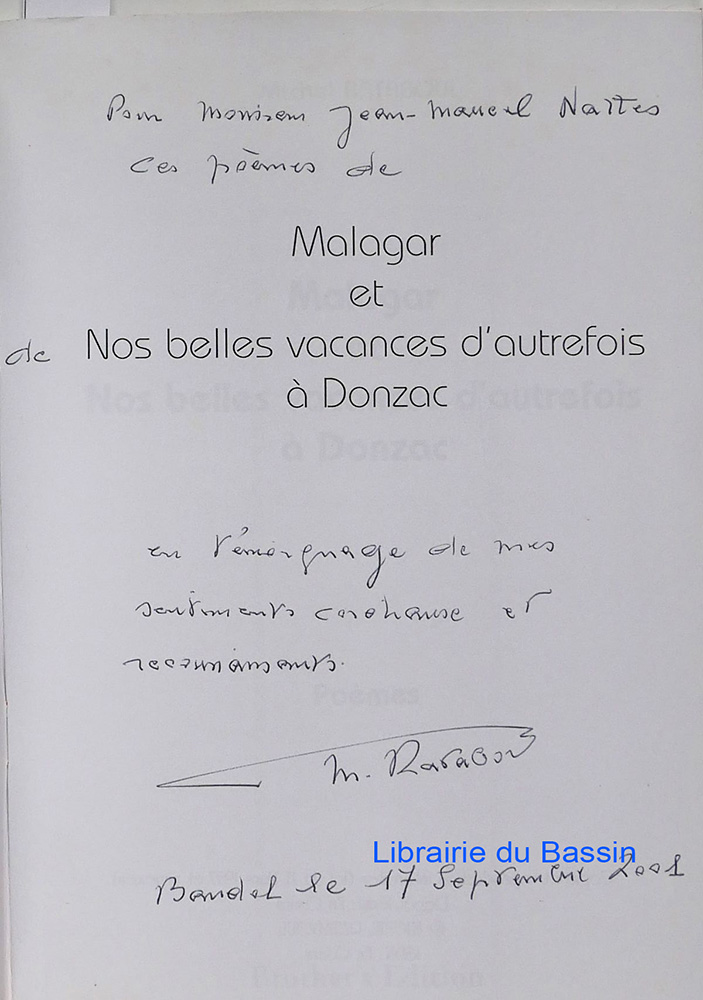 Pour Monsieur Jean-Manuel Naites
Ces poèmes de
Malagar
et
de Nos belles vacances d'autrefois
à Donzac
en témoignage de mes
sentiments et
reconnaissants.
M.
Librairie du Bassin
Bandol le 17 Septembre 2001
Malagar
Nos belles d'autrefois
à Donzac
Poèmes